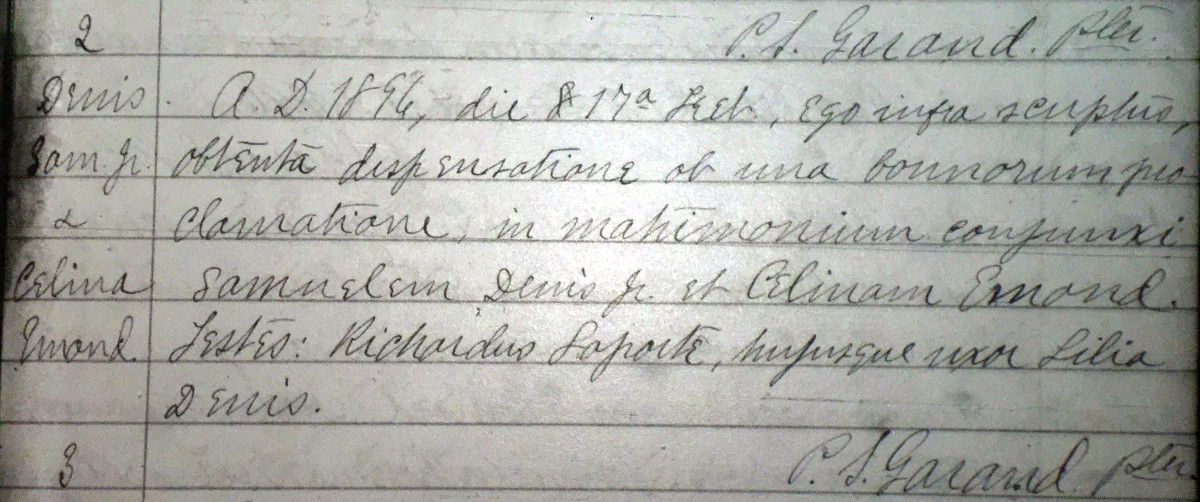 2
P. S. Garand. Pter.
Denis. A. D. 1896, die 8 17a Feb., Ego infra scriptus,
Sam Jr. obtenta dispensatione ob una bonnorum pro
& clamatione, in matrimonium conjunxi
Celina Samuelem Denis Jr. et Celinam Emond.
Emond. Testes: Richardus Laporte, hujusque uxor Lilia
Denis.
3
P. S. Garand Pter